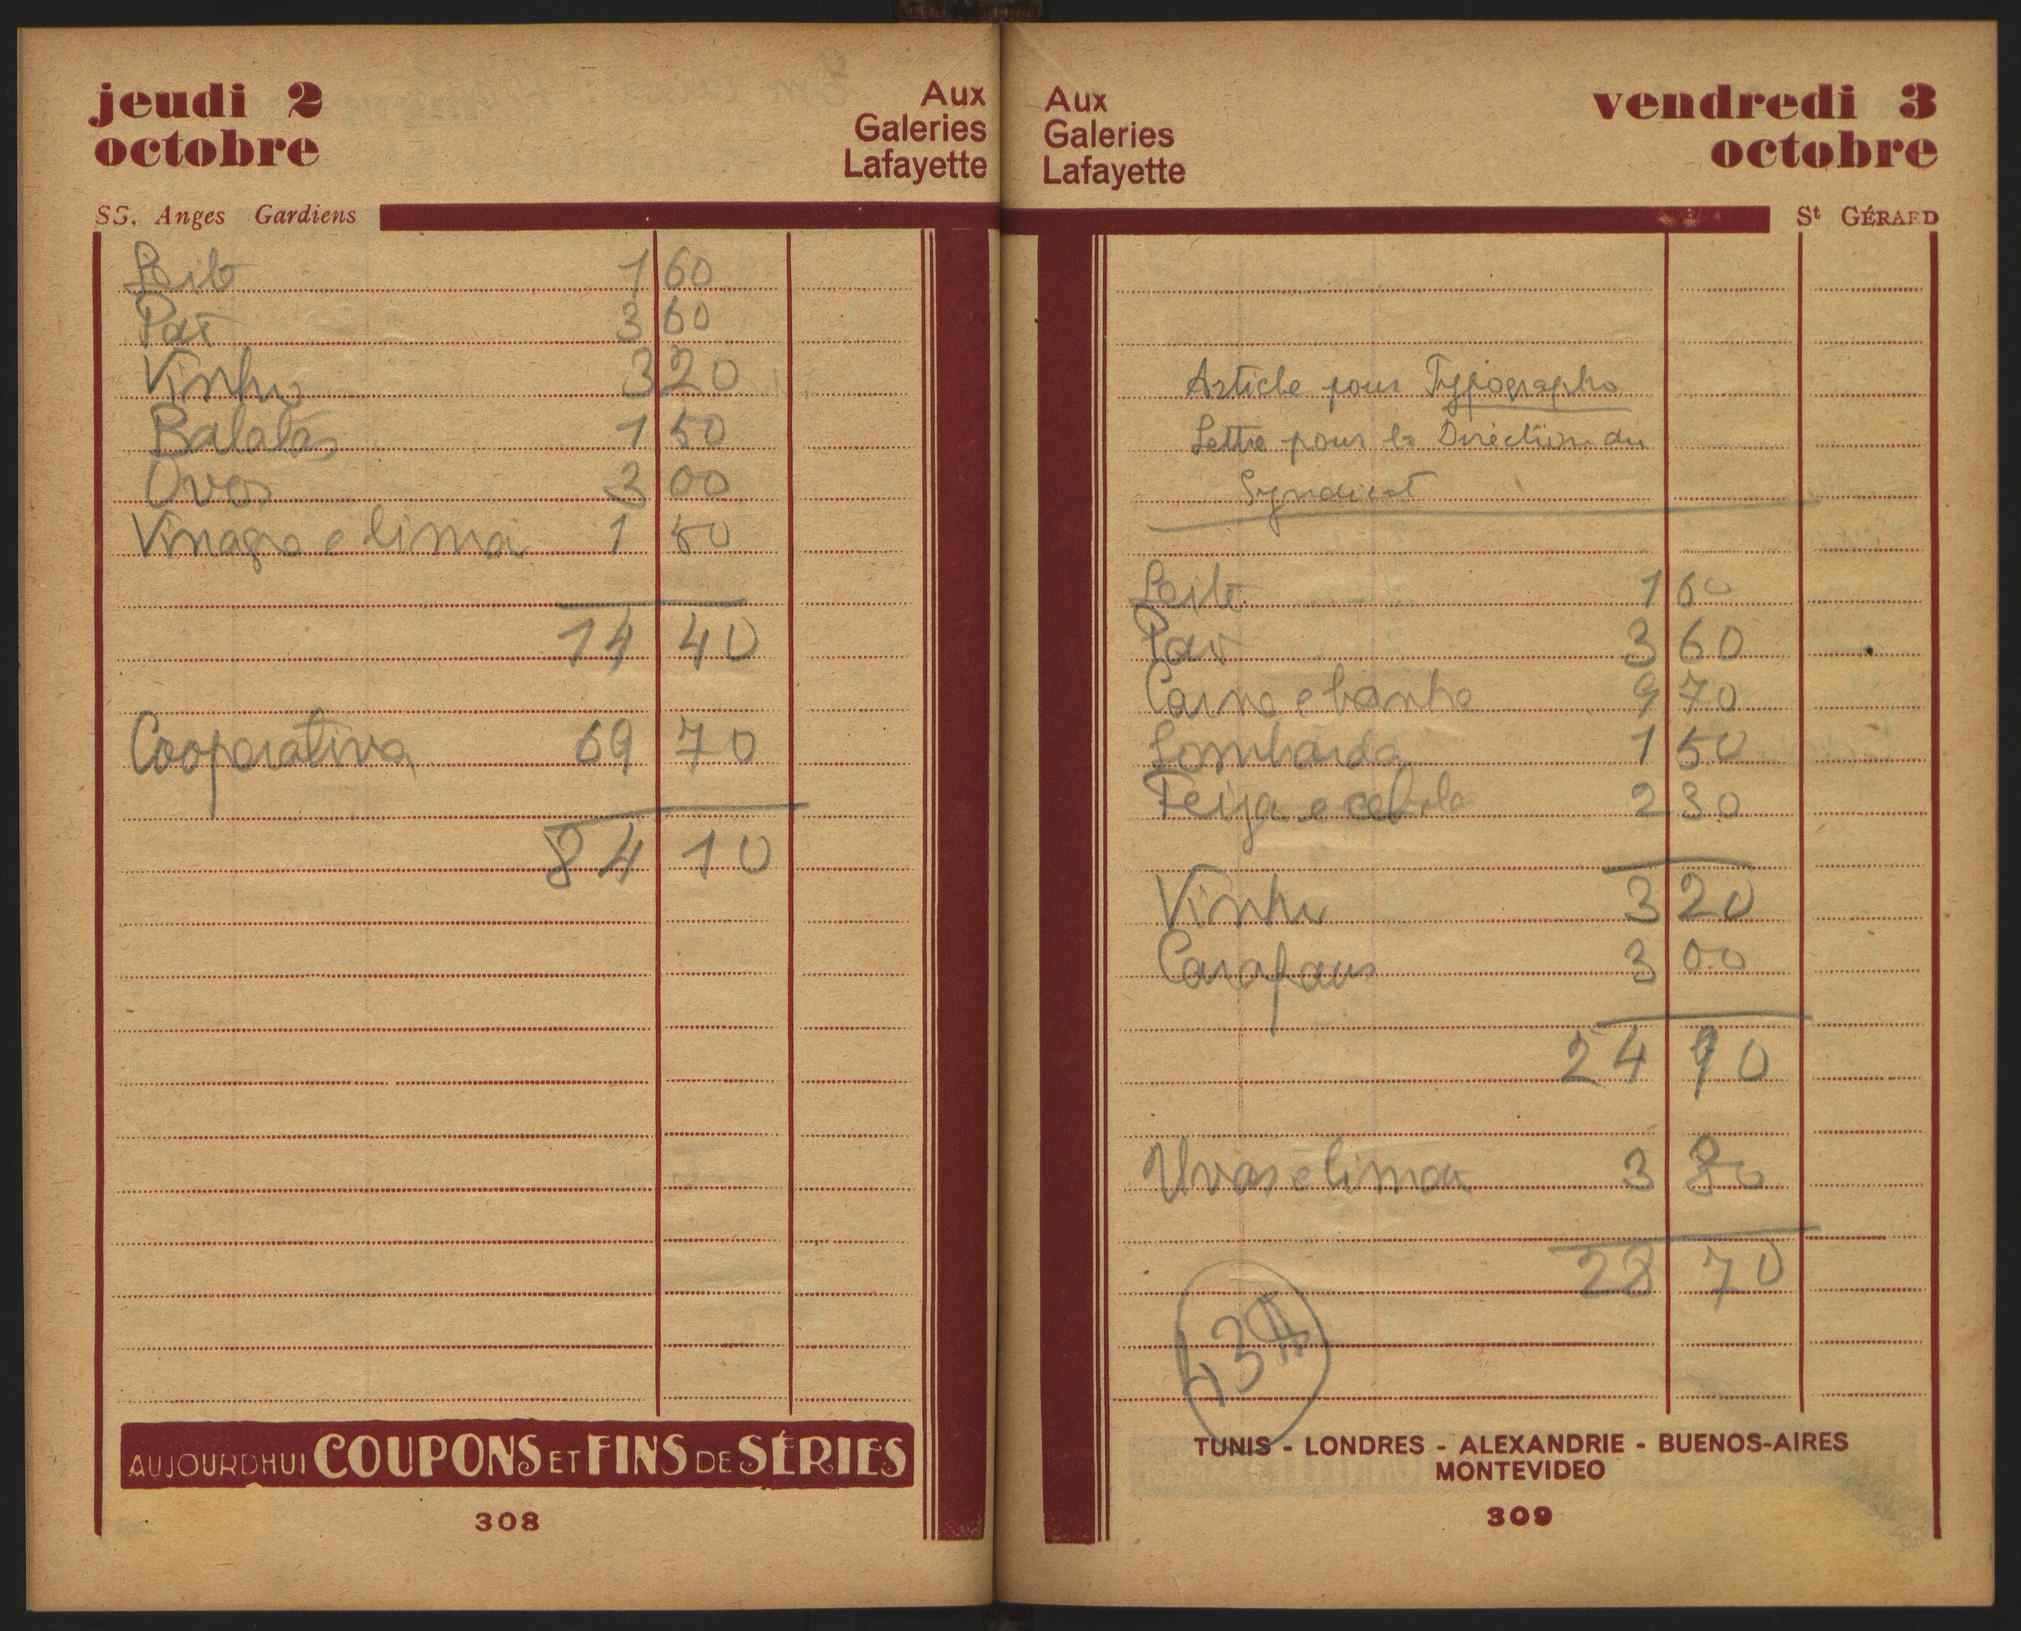 jeudi 2
octobre
Aux
Galeries
Lafayette
SS. Anges Gardiens
Leite 1 60
Pão 3 60
Vinho 3 20
Batatas 1 50
Ovos 3 00
Vinagre e lima 1 50
14 40
Cooperativa 69 70
84 10
AUJOURDHUI COUPONS ET FINS DE SÉRIES
308
Aux
Galeries
Lafayette
vendredi 3
octobre
St GÉRARD
Article pour Typographo
Lettre pour la Direction du
Syndicat
Leite 1 60
Pão 3 60
Carne e banha 9 70
Lombarda 1 50
Feijão e cebola 2 30
Vinho 3 20
Carapaus 3 00
24 90
Uvas e limão 3 80
28 70
TUNIS - LONDRES - ALEXANDRIE - BUENOS-AIRES
MONTEVIDEO
309